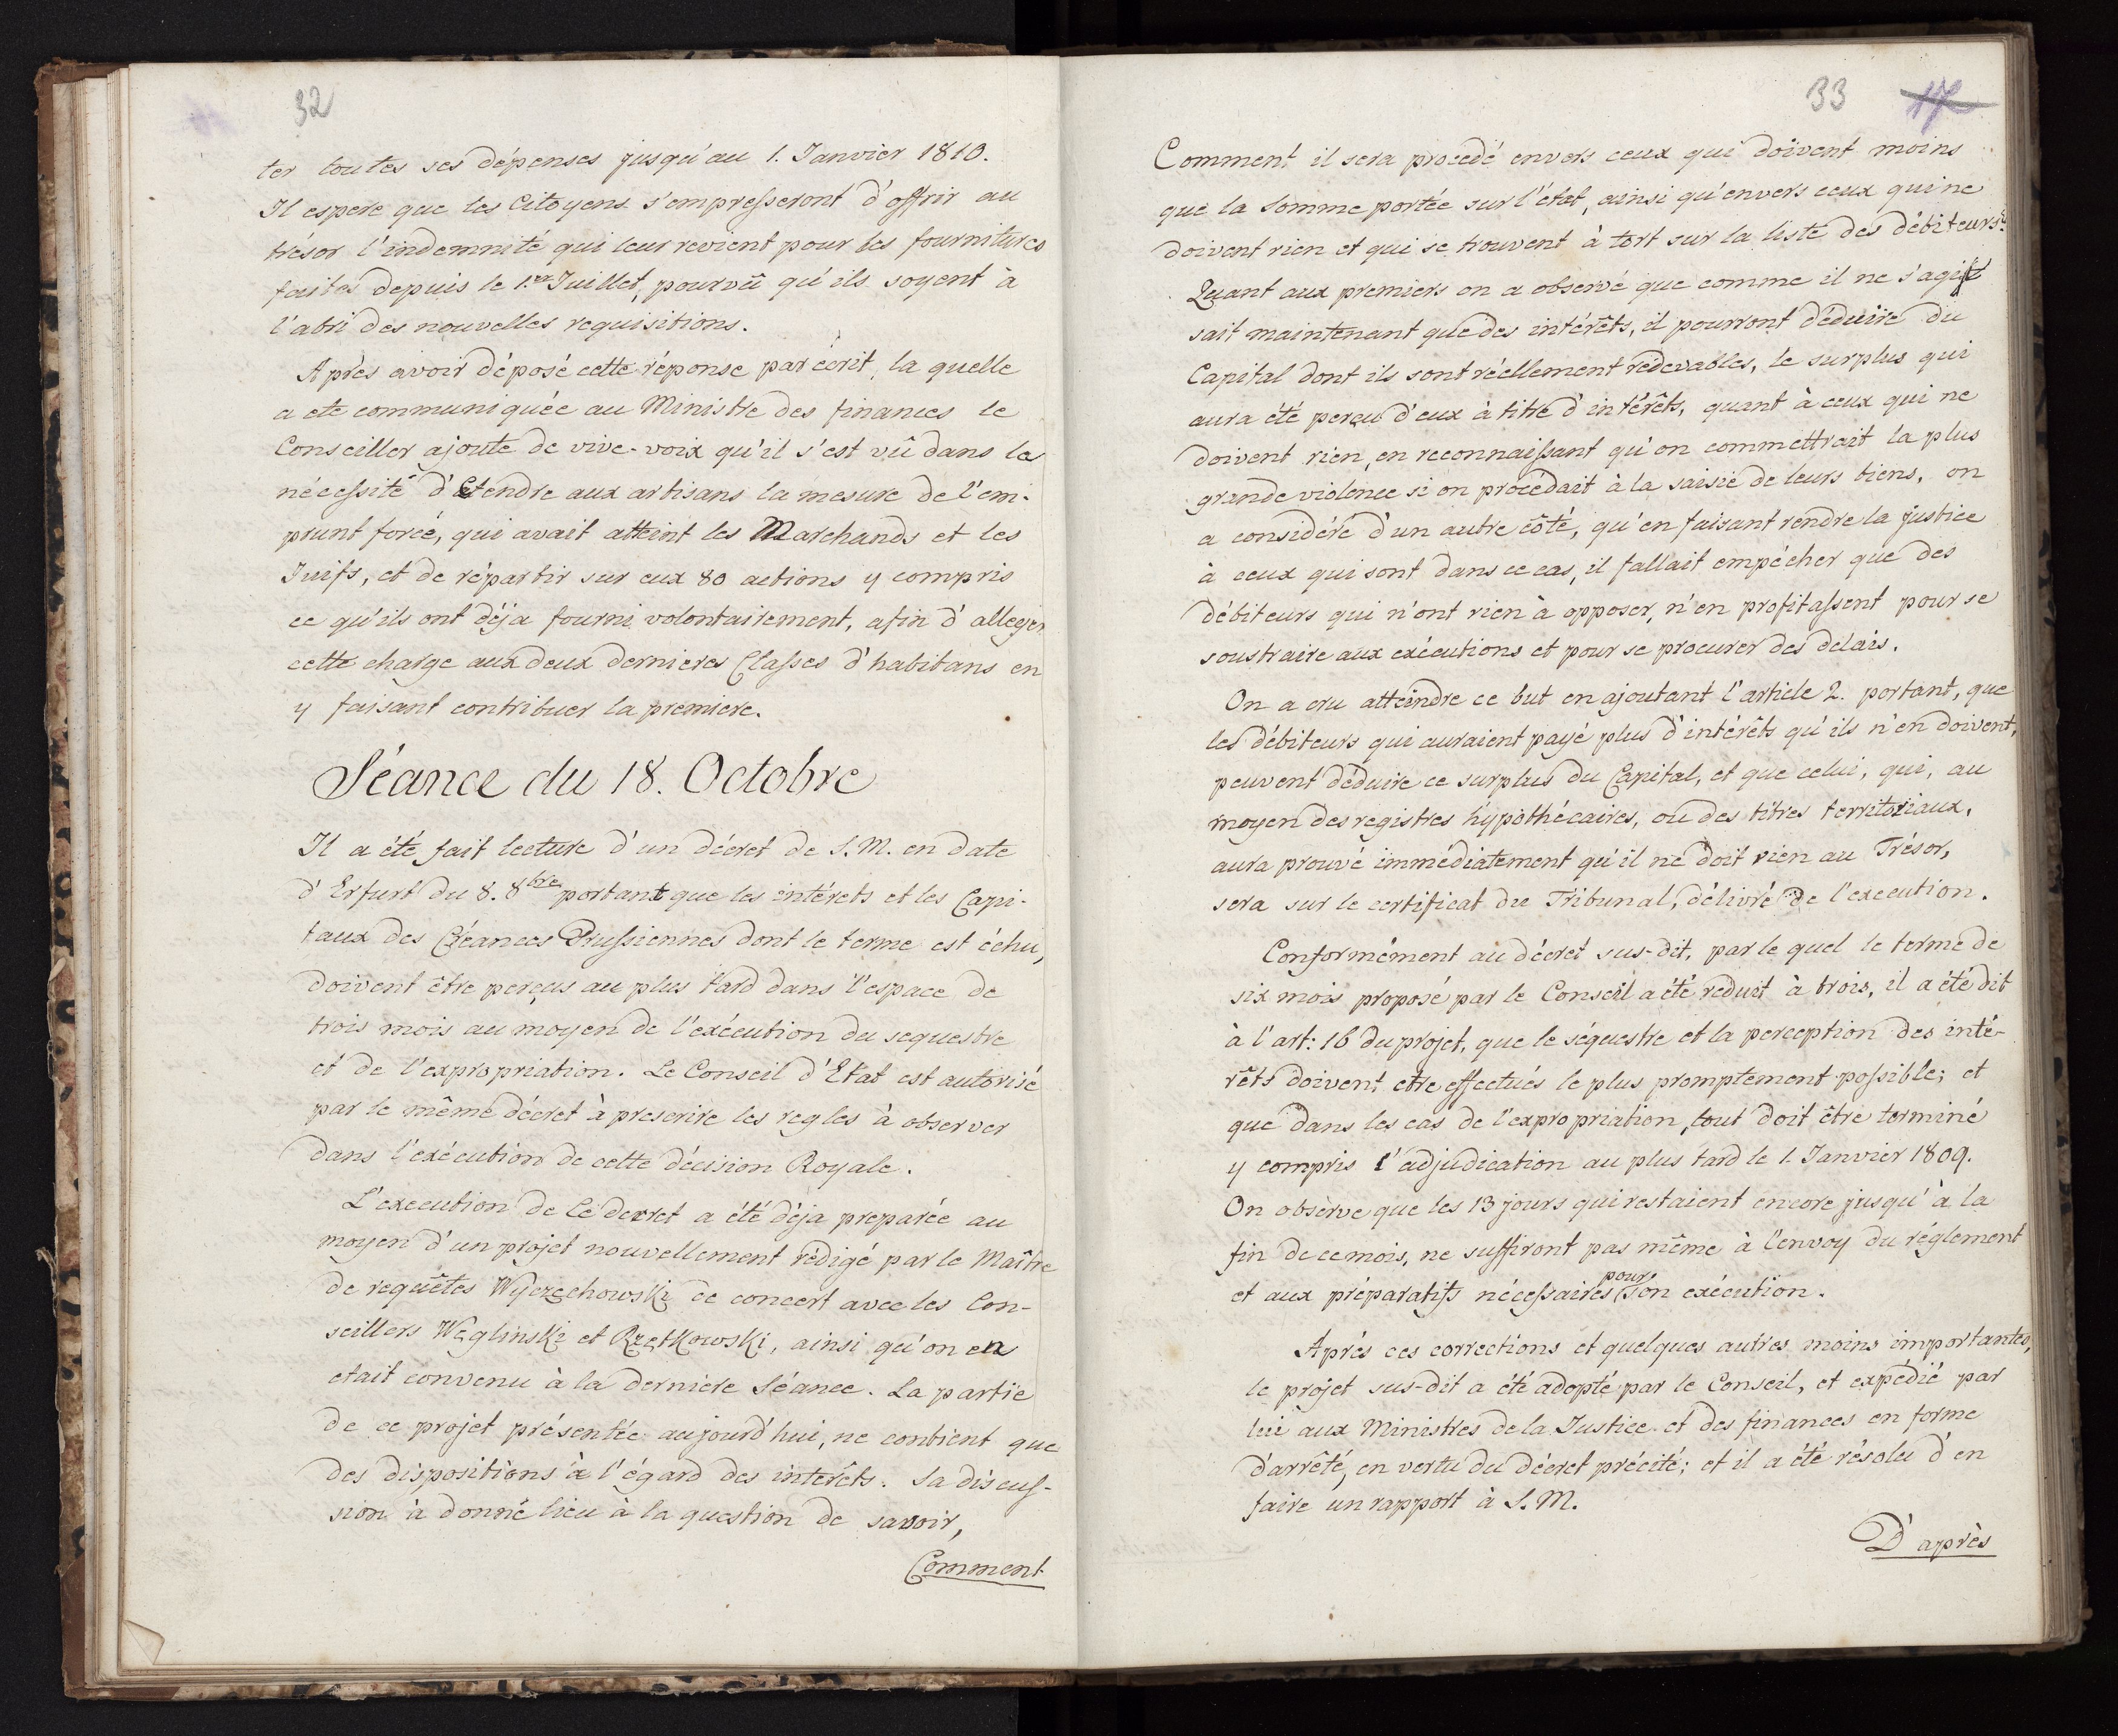 32
ter toutes ses dépenses jusqu'au 1. Janvier 1810.
Il espere que les Citoyens s'empresseront d'offrir au
trésor l'indemnité qui leur revient pour les fournitures
faites depuis le 1.er Juillet, pourvû qu'ils soyent à
l'abri des nouvelles requisitions.
Après avoir déposé cette réponse par écrit, la quelle
a ete communiquée au Ministre des finances le
Conseiller ajoute de vive-voix qu'il s'est vû dans la
nécessité d'Etendre aux artisans la mesure de l'em-
prunt forcé, qui avait atteint les Marchands et les
Juifs, et de répartir sur eux 80 actions y compris
ce qu'ils ont déja fourni volontairement, afin d'alleger
cette charge aux deux dernieres Classes d'habitans en
y faisant contribuer la premiere.
Séance du 18. Octobre
Il a été fait lecture d'un décret de S. M. en date
d'Erfurt du 8. 8bre portant que les intérets et les Capi-
taux des Créances Prussiennes dont le terme est échu,
doivent être perçus au plus tard dans l'espace de
trois mois au moyen de l'exécution du sequestre
et de l'expropriation. Le Conseil d'Etat est autorisé
par le même décret à prescrire les regles à observer
dans l'exécution de cette décision Royale.
L'execution de Ce decret a été déja preparée au
moyen d'un projet nouvellement rédigé par le Maître
de requêtes Wyczechowski de concert avec les Con-
seillers Węglinski et Rzętkowski, ainsi qu'on en
etait convenu à la derniere Séance. La partie
de ce projet présentée aujourd'hui, ne contient que
des dispositions à l'égard des intérêts. Sa discus-
sion à donné lieu à la question de savoir,
Comment
33 17
Comment il sera procedé envers ceux qui doivent moins
que la Somme portée sur l'état, ainsi qu'envers ceux qui ne
doivent rien et qui se trouvent à tort sur la liste des débiteurs?
Quant aux premiers on a observé que comme il ne s'agis
sait maintenant que des intérêts, il pourront déduire du
Capital dont ils sont réellement redevables, le surplus qui
aura été perçu d'eux à titre d'intérêts, quant à ceux qui ne
doivent rien, en reconnaissant qu'on commettrait la plus
grande violence si on procedait à la saisie de leurs biens, on
a considéré d'un autre côté, qu'en faisant rendre la justice
à ceux qui sont dans ce cas, il fallait empécher que des
débiteurs qui n'ont rien à opposer, n'en profitassent pour se
soustraire aux exécutions et pour se procurer des delais.
On a cru atteindre ce but en ajoutant l'article 2. portant, que
les débiteurs qui auraient payé plus d'intérêts qu'ils n'en doivent,
peuvent déduire ce surplus du Capital, et que celui, qui, au
moyen des registres hypothécaires, ou des titres territoriaux,
aura prouvé immédiatement qu'il ne doit rien au Trésor,
sera sur le certificat du Tribunal, délivré de l'execution.
Conformément au décret sus-dit, par le quel le terme de
six mois proposé par le Conseil a été reduit à trois, il a été dit
à l'art: 16 du projet, que le séquestre et la perception des inté-
rêts doivent etre effectués le plus promptement possible; et
que dans les cas de l'expropriation, tout doit être terminé
y compris l'adjudication au plus tard le 1. Janvier 1809.
On observe que les 13 jours qui restaient encore jusqu'à la
fin de ce mois, ne suffiront pas même à l'envoy du réglement
et aux préparatifs nécessaires pour son exécution.
Aprés ces corrections et quelques autres moins importantes,
le projet sus-dit a été adopté par le Conseil, et expédié par
lui aux Ministres de la Justice et des finances en forme
d'arrêté, en vertu du décret précité; et il a été résolu d'en
faire un rapport à S. M.
D'après